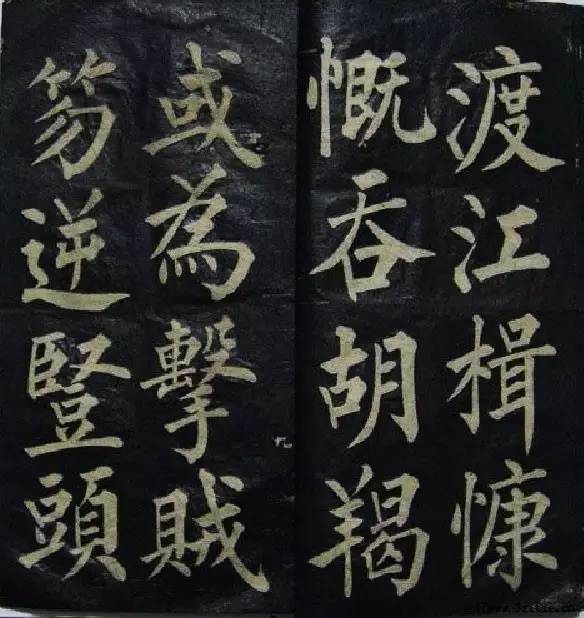 渡江楫慷
慨吞胡羯
九
或為擊賊
笏逆豎頭